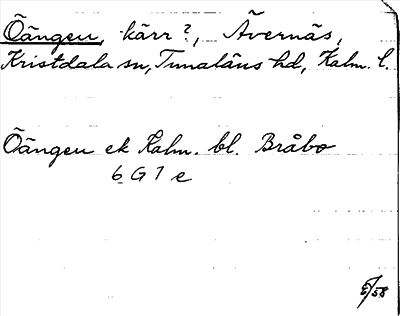 Öängen, kärr?, Ävernäs,
Kristdala sn, Tunaläns hd, Kalm. l.
Öängen ek Kalm. bl. Bråbo
6 G 7 e
E/58